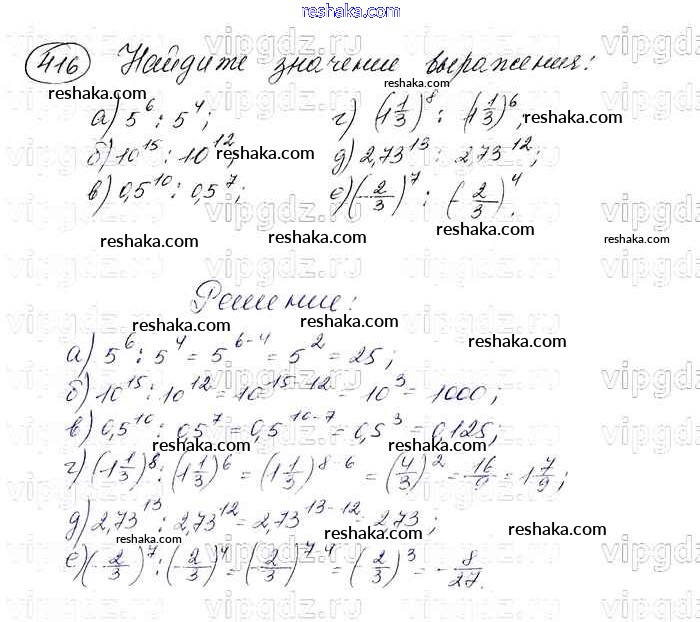 reshaka.com
416 Найдите значение выражения:
reshaka.com reshaka.com
а) 5^6 : 5^4; г) (1 1/3)^8 : (1 1/3)^6;
reshaka.com
б) 10^15 : 10^12; д) 2,73^13 : 2,73^12;
reshaka.com reshaka.com
в) 0,5^10 : 0,5^7; е) (-2/3)^7 : (-2/3)^4.
reshaka.com reshaka.com reshaka.com reshaka.com
Решение:
reshaka.com reshaka.com reshaka.com
а) 5^6 : 5^4 = 5^6-4 = 5^2 = 25;
б) 10^15 : 10^12 = 10^15-12 = 10^3 = 1000;
в) 0,5^10 : 0,5^7 = 0,5^10-7 = 0,5^3 = 0,125;
reshaka.com reshaka.com
г) (1 1/3)^8 : (1 1/3)^6 = (1 1/3)^8-6 = (4/3)^2 = 16/9 = 1 7/9;
д) 2,73^13 : 2,73^12 = 2,73^13-12 = 2,73;
reshaka.com reshaka.com reshaka.com
е) (-2/3)^7 : (-2/3)^4 = (-2/3)^7-4 = (-2/3)^3 = -8/27.
reshaka.com reshaka.com reshaka.com